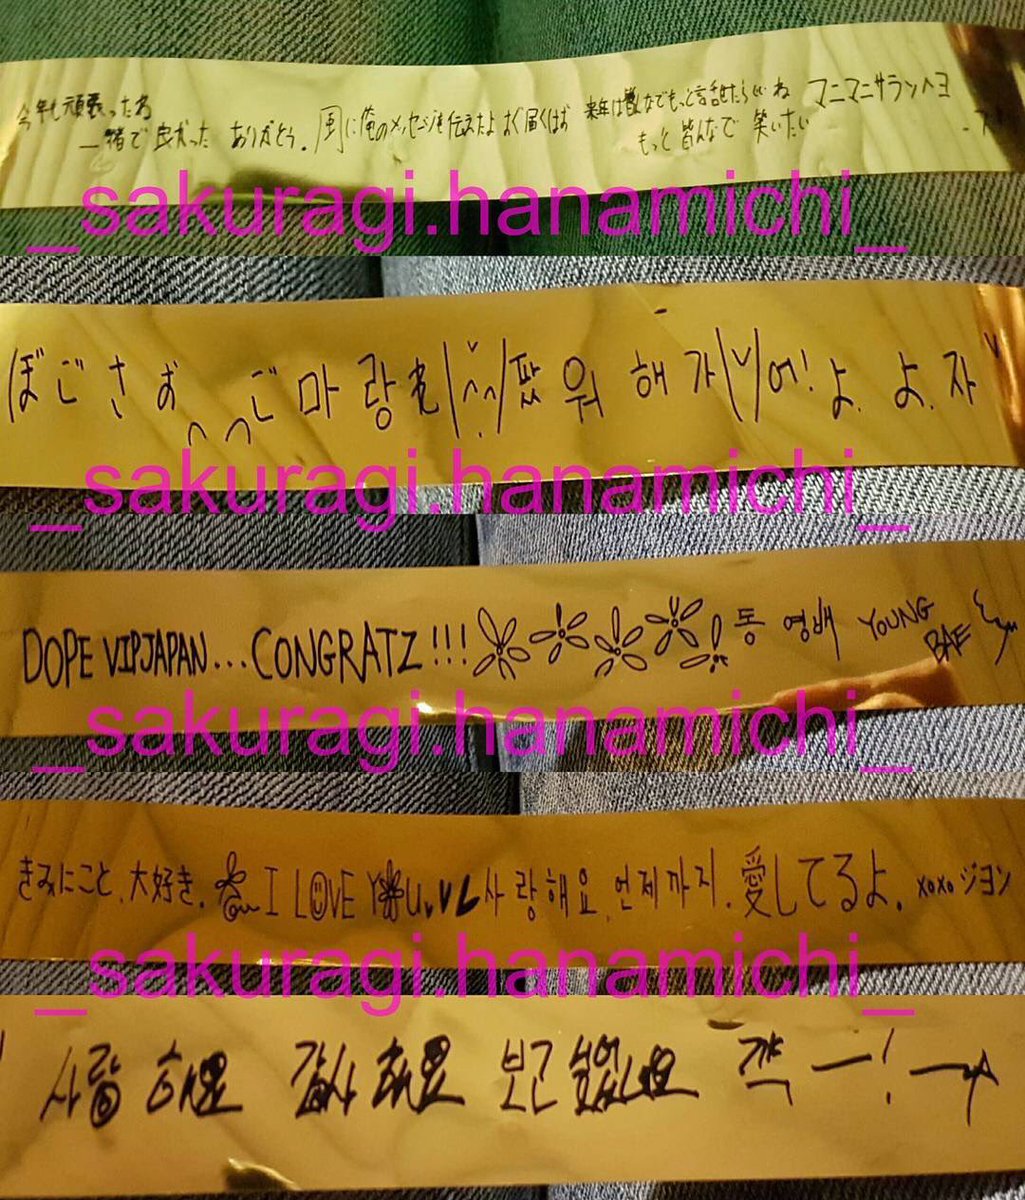 今年も頑張ったね
一緒で良かった ありがとう. 風に俺のメッセージを伝えたよ よく届くはず
来年は皆んなでもっと話せたらいいね マニマニサランヘヨ
もっと皆んなで 笑いたい
_sakuragi.hanamichi_
ぼご さ ご 마 랑 워 해 가 어! よ. よ. 자
_sakuragi.hanamichi_
DOPE VIPJAPAN... CONGRATZ !!! 동 영배 YOUNG BAE
_sakuragi.hanamichi_
きみにこと、大好き. I LOVE YOU 사랑해요, 언제까지. 愛してるよ. xoxo ジヨン
_sakuragi.hanamichi_
사랑해요 감사해요 보고